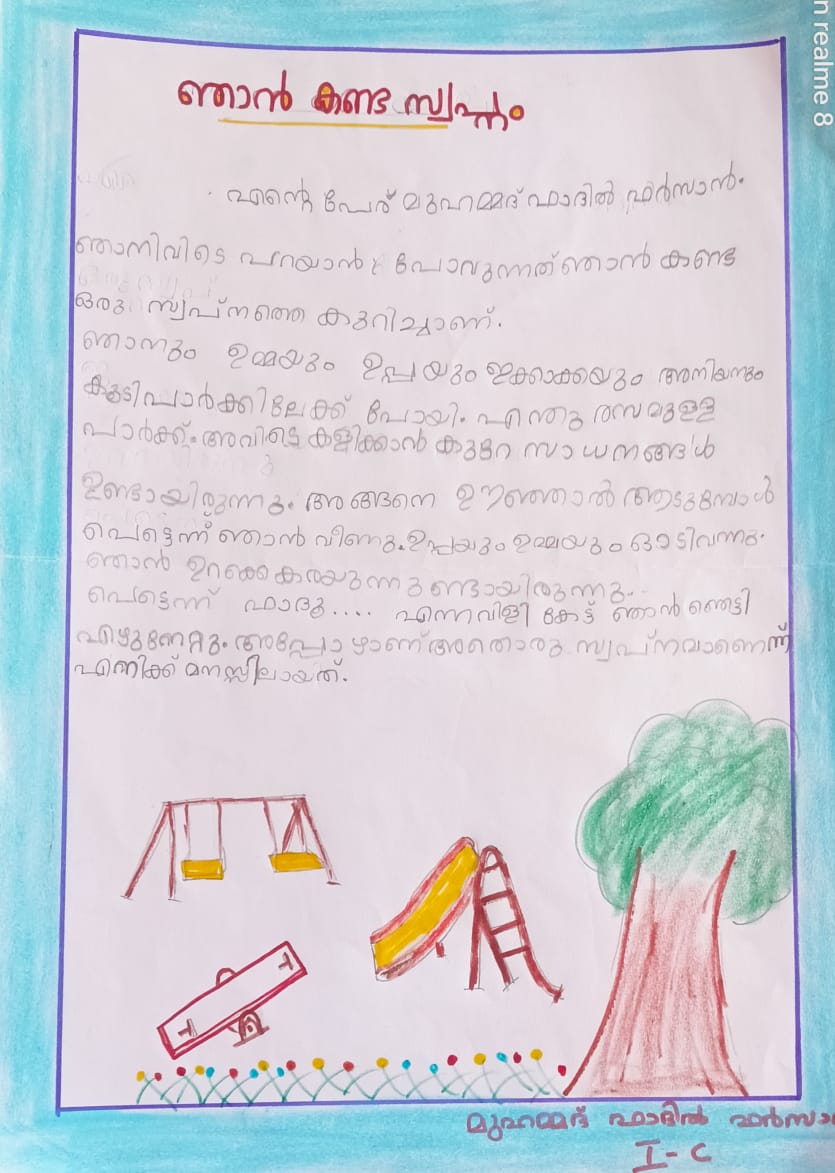 ഞാൻ കണ്ട സ്വപ്നം
എന്റെ പേര് മുഹമ്മദ് ഫാദിൽ ഫർസാൻ.
ഞാനിവിടെ പറയാൻ പോവുന്നത് ഞാൻ കണ്ട
ഒരു സ്വപ്നത്തെ കുറിച്ചാണ്.
ഞാനും ഉമ്മയും ഉപ്പയും ഇക്കാക്കയും അനിയനും
കൂടി പാർക്കിലേക്ക് പോയി. എന്തു രസമുള്ള
പാർക്ക്. അവിടെ കളിക്കാൻ കുറേ സാധനങ്ങൾ
ഉണ്ടായിരുന്നു. അങ്ങനെ ഊഞ്ഞാൽ ആടുമ്പോൾ
പെട്ടെന്ന് ഞാൻ വീണു. ഉപ്പയും ഉമ്മയും ഓടിവന്നു.
ഞാൻ ഉറക്കെ കരയുന്നുണ്ടായിരുന്നു..
പെട്ടെന്ന് ഫാദൂ.... എന്ന വിളി കേട്ട് ഞാൻ ഞെട്ടി
എഴുന്നേറ്റു. അപ്പോഴാണ് അതൊരു സ്വപ്നമാണെന്ന്
എനിക്ക് മനസ്സിലായത്.
മുഹമ്മദ് ഫാദിൽ ഫർസാ
I - C
n realme 8